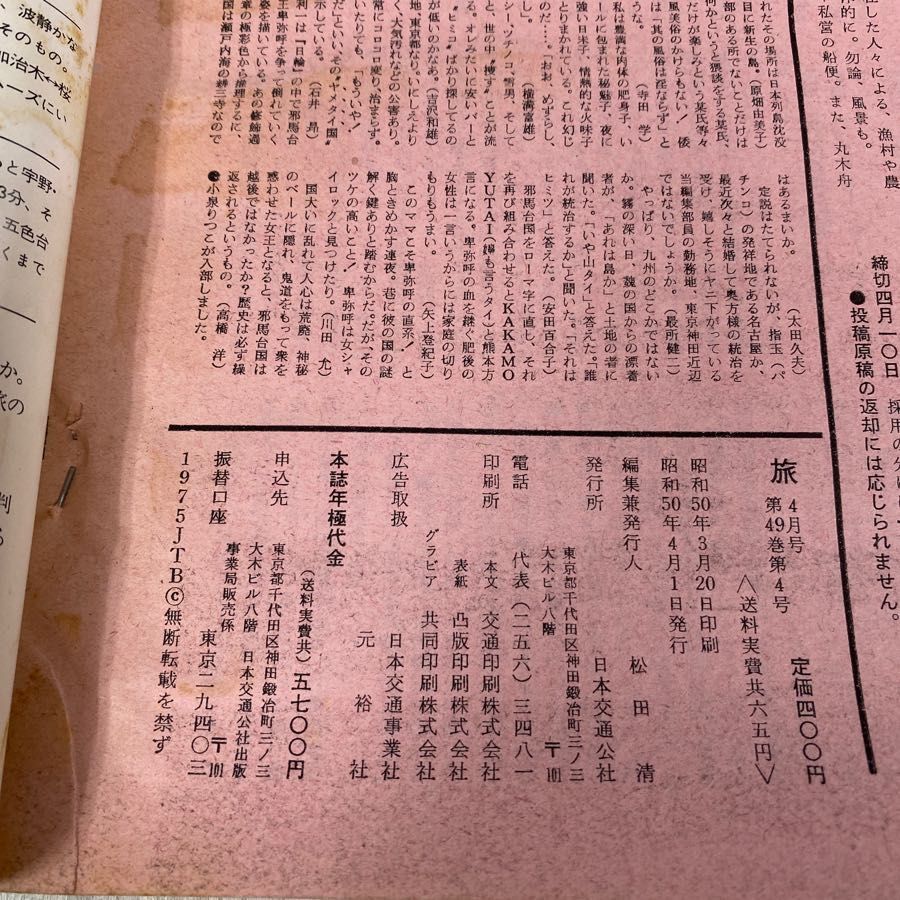 締切四月一〇日
●投稿原稿の返却には応じられません。
在した人々による、漁村や農
体的に。勿論、風景も。
私営の船便。また、丸木舟
れたその場所は日本列島沈没
目に新生の島。（原畑由美子）
部のある所でないことだけは
何かというと猥談をする某氏、
だけが楽しみという某氏等々
風美俗のかけらもない！　倭
は「其の風俗は淫ならず」と
な。（寺田　学）
私は豊満な肉体の肥身子、夜に
ールに包まれた秘魅子、また
強い日米子、情熱的な火味子
とりまかれている。これ幻じ
し」。（横溝富雄）
シー、ツチノコ、雪男、そして
、世の中"捜す"ことが流
"ヒミコ"ばかり探してるの
る。オレみたいに安いバーと
が低いのかなあ。（吉沢和雄）
地、東京都なり。いにしえより
く、大気汚れなどの公害あり。
いたりても、「もういや！」
常にコロコロ変り、治まらず。
だといいその"ヤメタイ国"
示している。（石井　昴）
利一は「日輪」の中で邪馬台
王卑弥呼を争って倒れていく
姿を描いている。あの修飾過
章の極彩色から推理するに
国は瀬戸内海の耕三寺なので
はあるまいか。（太田久夫）
定説はたてられないが、指玉（パ
チンコ）の発祥地である名古屋か、
最近次々と結婚して奥方様の統治を
受け、嬉しそうにヤニ下がっている
当編集部員の勤務地、東京神田近辺
ではないでしょうか。（最所健二）
やっぱり、九州のどこかではない
か。霧の深い日、魏の国からの漂着
者が、「あれは島か」と土地の者に
聞いた。「いや山タイ」と答えた。「誰
れが統治するか」と聞いた。「それは
ヒミツ」と答えた。（安田百合子）
邪馬台国をローマ字に直し、それ
を再び組み合わせるとＫＡＫＡＭＯ
ＹＵＴＡＩ（嬶も言うタイ）と熊本方
言になる。卑弥呼の血を継ぐ肥後の
女性は一言いうからには家庭の切り
もりもうまい。（矢上登紀子）
このママこそ卑弥呼の直系！　と
胸ときめかす連夜。巷に彼の国の謎
解く鍵ありと踏むからだ。だが、その
ツケの高いこと！　卑弥呼は女シャ
イロックと見つけたり。（川田　允）
国大いに乱れて人心は荒廃、神秘
のベールに隠れ、鬼道をもって衆を
惑わせた女王となると、邪馬台国は
越後ではなかったか？歴史は必ず繰
返されるというもの。（高橋　洋）
●小泉りつこが入部しました。
旅　４月号　定価四〇〇円
第49巻第４号　〈送料実費共六五円〉
昭和50年３月20日印刷
昭和50年４月１日発行
編集兼発行人　松田　清
発行所　日本交通公社
東京都千代田区神田鍛冶町三ノ三
大木ビル八階　〒101
電話　代表（二五六）三四八一
印刷所　本文　交通印刷株式会社
表紙　凸版印刷株式会社
グラビア　共同印刷株式会社
広告取扱　日本交通事業社
元裕社
本誌年極代金　（送料実費共）五七〇〇円
申込先　東京都千代田区神田鍛冶町三ノ三
大木ビル八階　日本交通公社出版
事業局販売係　〒101
振替口座　東京二九四〇三
１９７５ＪＴＢⓒ無断転載を禁ず
波静かな
そのもの。
和治木⟷桜
ーズにい
っと宇野・
3分、そ
五色台
くまで
か。
旅の
判